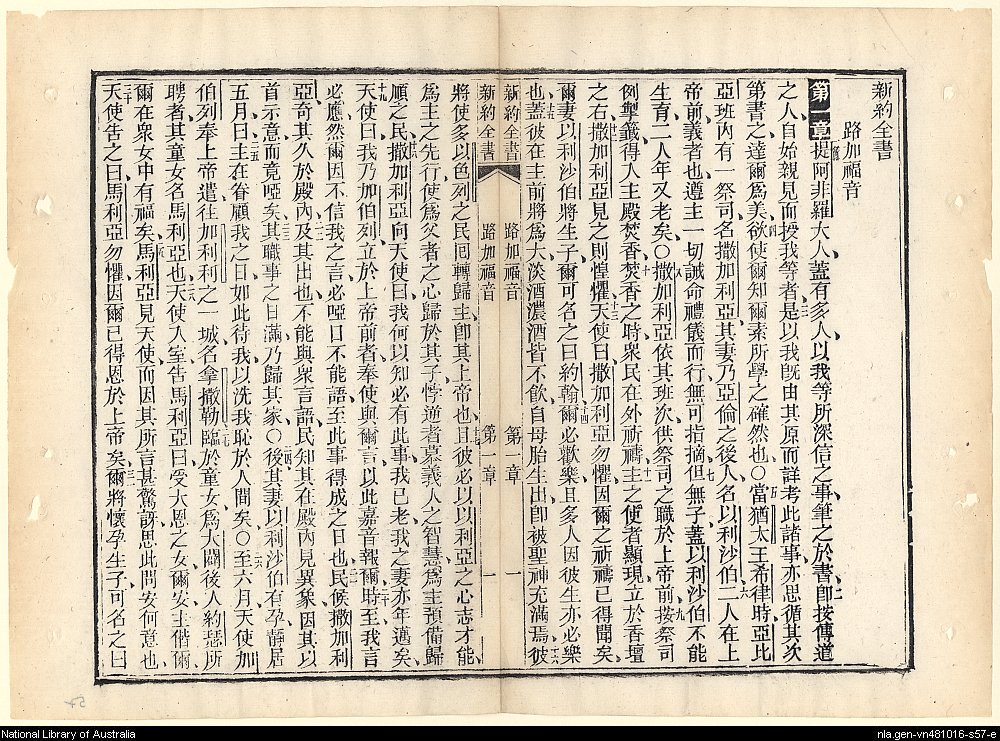 新約全書
路加福音
第一章提阿非羅大人、蓋有多人、以我等所深信之事、筆之於書、卽按傳道
之人、自始親見而授我等者、是以我既由其原而詳考此諸事、亦思循其次
第書之達爾爲美、欲使爾知爾素所學之確然也○當猶太王希律時、亞比
亞班內有一祭司名撒加利亞、其妻乃亞倫之後人名以利沙伯、二人在上
帝前義者也、遵主一切誡命禮儀而行、無可指摘、但無子、蓋以利沙伯不能
生育、二人年又老矣○撒加利亞依其班次供祭司之職於上帝前、按祭司
例掣籤、得入主殿焚香、焚香之時、衆民在外祈禱、主之使者顯現、立於香壇
之右、撒加利亞見之則惶懼、天使曰、撒加利亞勿懼、因爾之祈禱已得聞矣、
爾妻以利沙伯將生子、爾可名之曰約翰、爾必歡樂、且多人因彼生亦必樂
也、蓋彼在主前將爲大、淡酒濃酒皆不飲、自母胎生出、卽被聖神充滿焉、彼
新約全書 路加福音 第一章 一
新約全書 路加福音 第一章 一
將使多以色列之民囘轉歸主、卽其上帝也、且彼必以以利亞之心志才能、
爲主之先行、使爲父者之心歸於其子、悖逆者慕義人之智慧、爲主預備歸
順之民、撒加利亞向天使曰、我何以知必有此事、我已老、我之妻亦年邁矣、
天使曰、我乃加伯列、立於上帝前者、奉使與爾言、以此嘉音報爾、時至我言
必應、然爾因不信我之言、必啞口不能語、至此事得成之日也、民候撒加利
亞、奇其久於殿內、及其出也、不能與衆言語、民知其在殿內見異象、因其以
首示意而竟啞矣、其職事之日滿、乃歸其家○後其妻以利沙伯有孕、靜居
五月、曰、主在眷顧我之日、如此待我、以洗我恥於人間矣○至六月、天使加
伯列奉上帝遣、往加利利之一城名拿撒勒、臨於童女、爲大闢後人約瑟所
聘者、其童女名馬利亞也、天使入室、告馬利亞曰、受大恩之女、爾安、主偕爾、
爾在衆女中有福矣、馬利亞見天使、而因其所言甚驚訝、思此問安何意也、
天使告之曰、馬利亞勿懼、因爾已得恩於上帝矣、爾將懷孕生子、可名之曰
National Library of Australia
nla.gen-vn481016-s57-e